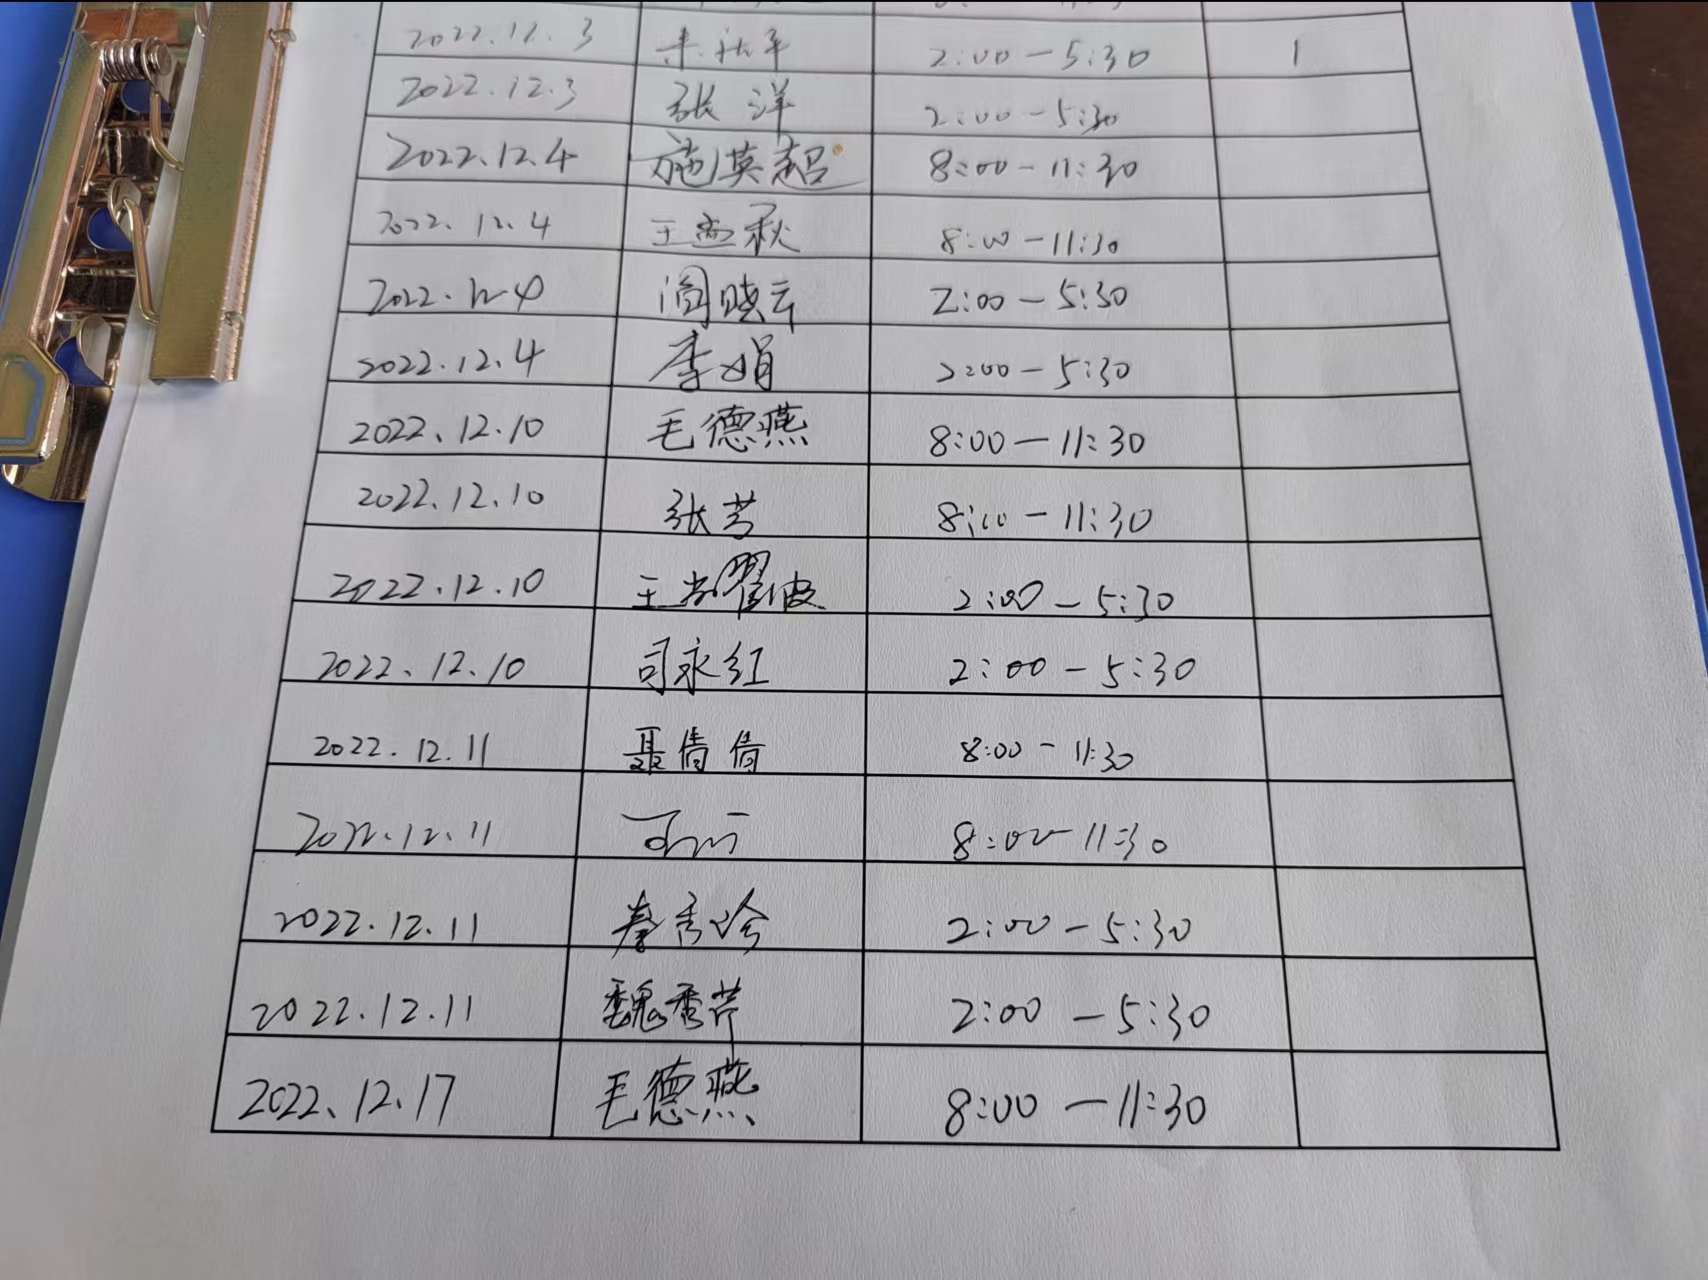 2022.12.3 2:00-5:30 1
2022.12.3 张洋 2:00-5:30
2022.12.4 施英超 8:00-11:30
2022.12.4 王孟秋 8:00-11:30
2022.12.4 阎晓云 2:00-5:30
2022.12.4 李娟 2:00-5:30
2022.12.10 毛德燕 8:00-11:30
2022.12.10 张芳 8:00-11:30
2022.12.10 王 2:00-5:30
2022.12.10 司永红 2:00-5:30
2022.12.11 聂倩倩 8:00-11:30
2022.12.11 8:00-11:30
2022.12.11 秦秀珍 2:00-5:30
2022.12.11 魏秀芹 2:00-5:30
2022.12.17 毛德燕 8:00-11:30